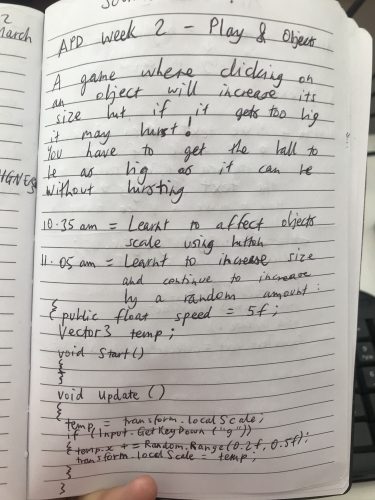 2
March
APD Week 2 - Play & Object
A game where clicking on
an object will increase its
size but if it gets too big
it may burst!
You have to get the ball to
be as big as it can be
without bursting
10.35 am = Learnt to affect objects
scale using button
11.05 am = Learnt to increase size
and continue to increase
by a random amount:
{ public float speed = 5f;
Vector3 temp;
void Start()
{
}
void Update ()
{
temp = transform.localScale;
if (Input.GetKeyDown("g"))
{ temp.x += Random.Range(0.2f, 0.5f);
transform.localScale = temp;
}
}